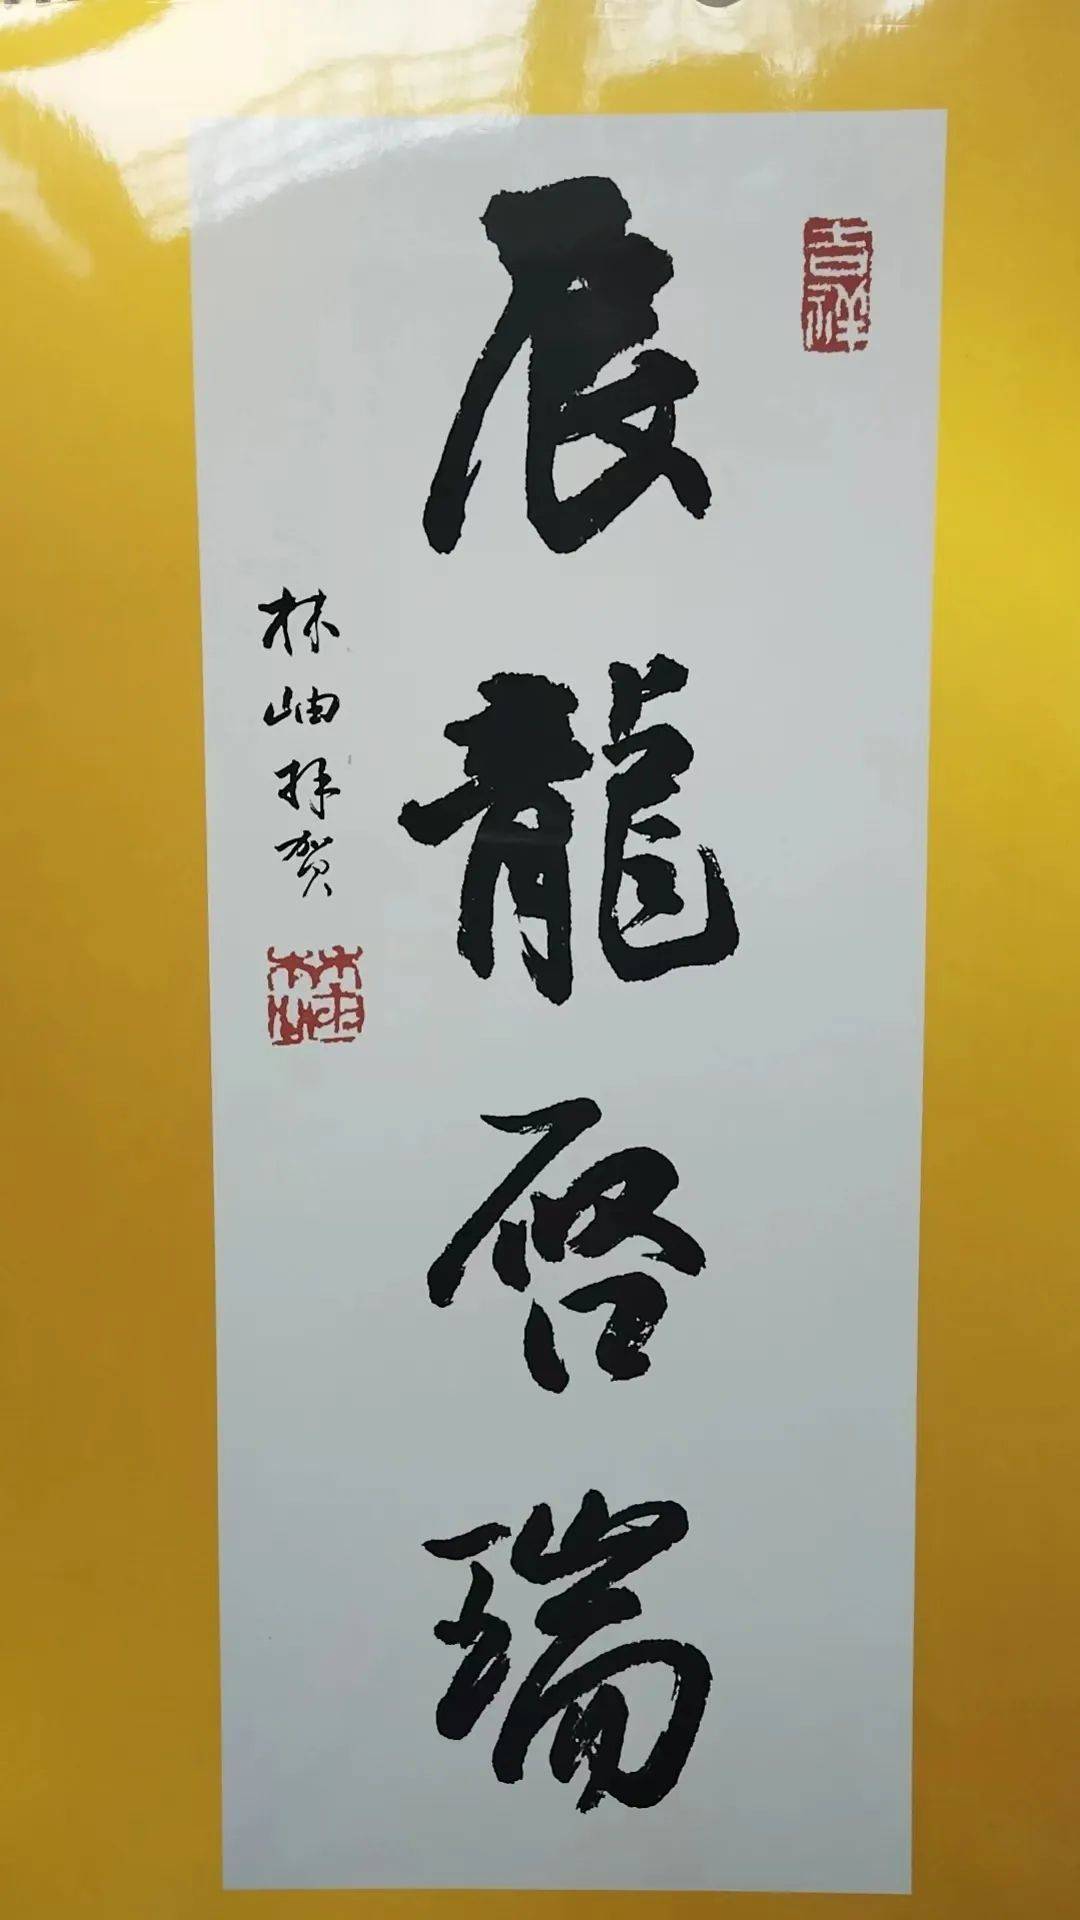 吉祥
辰龍啓瑞
林岫拜贺
林岫